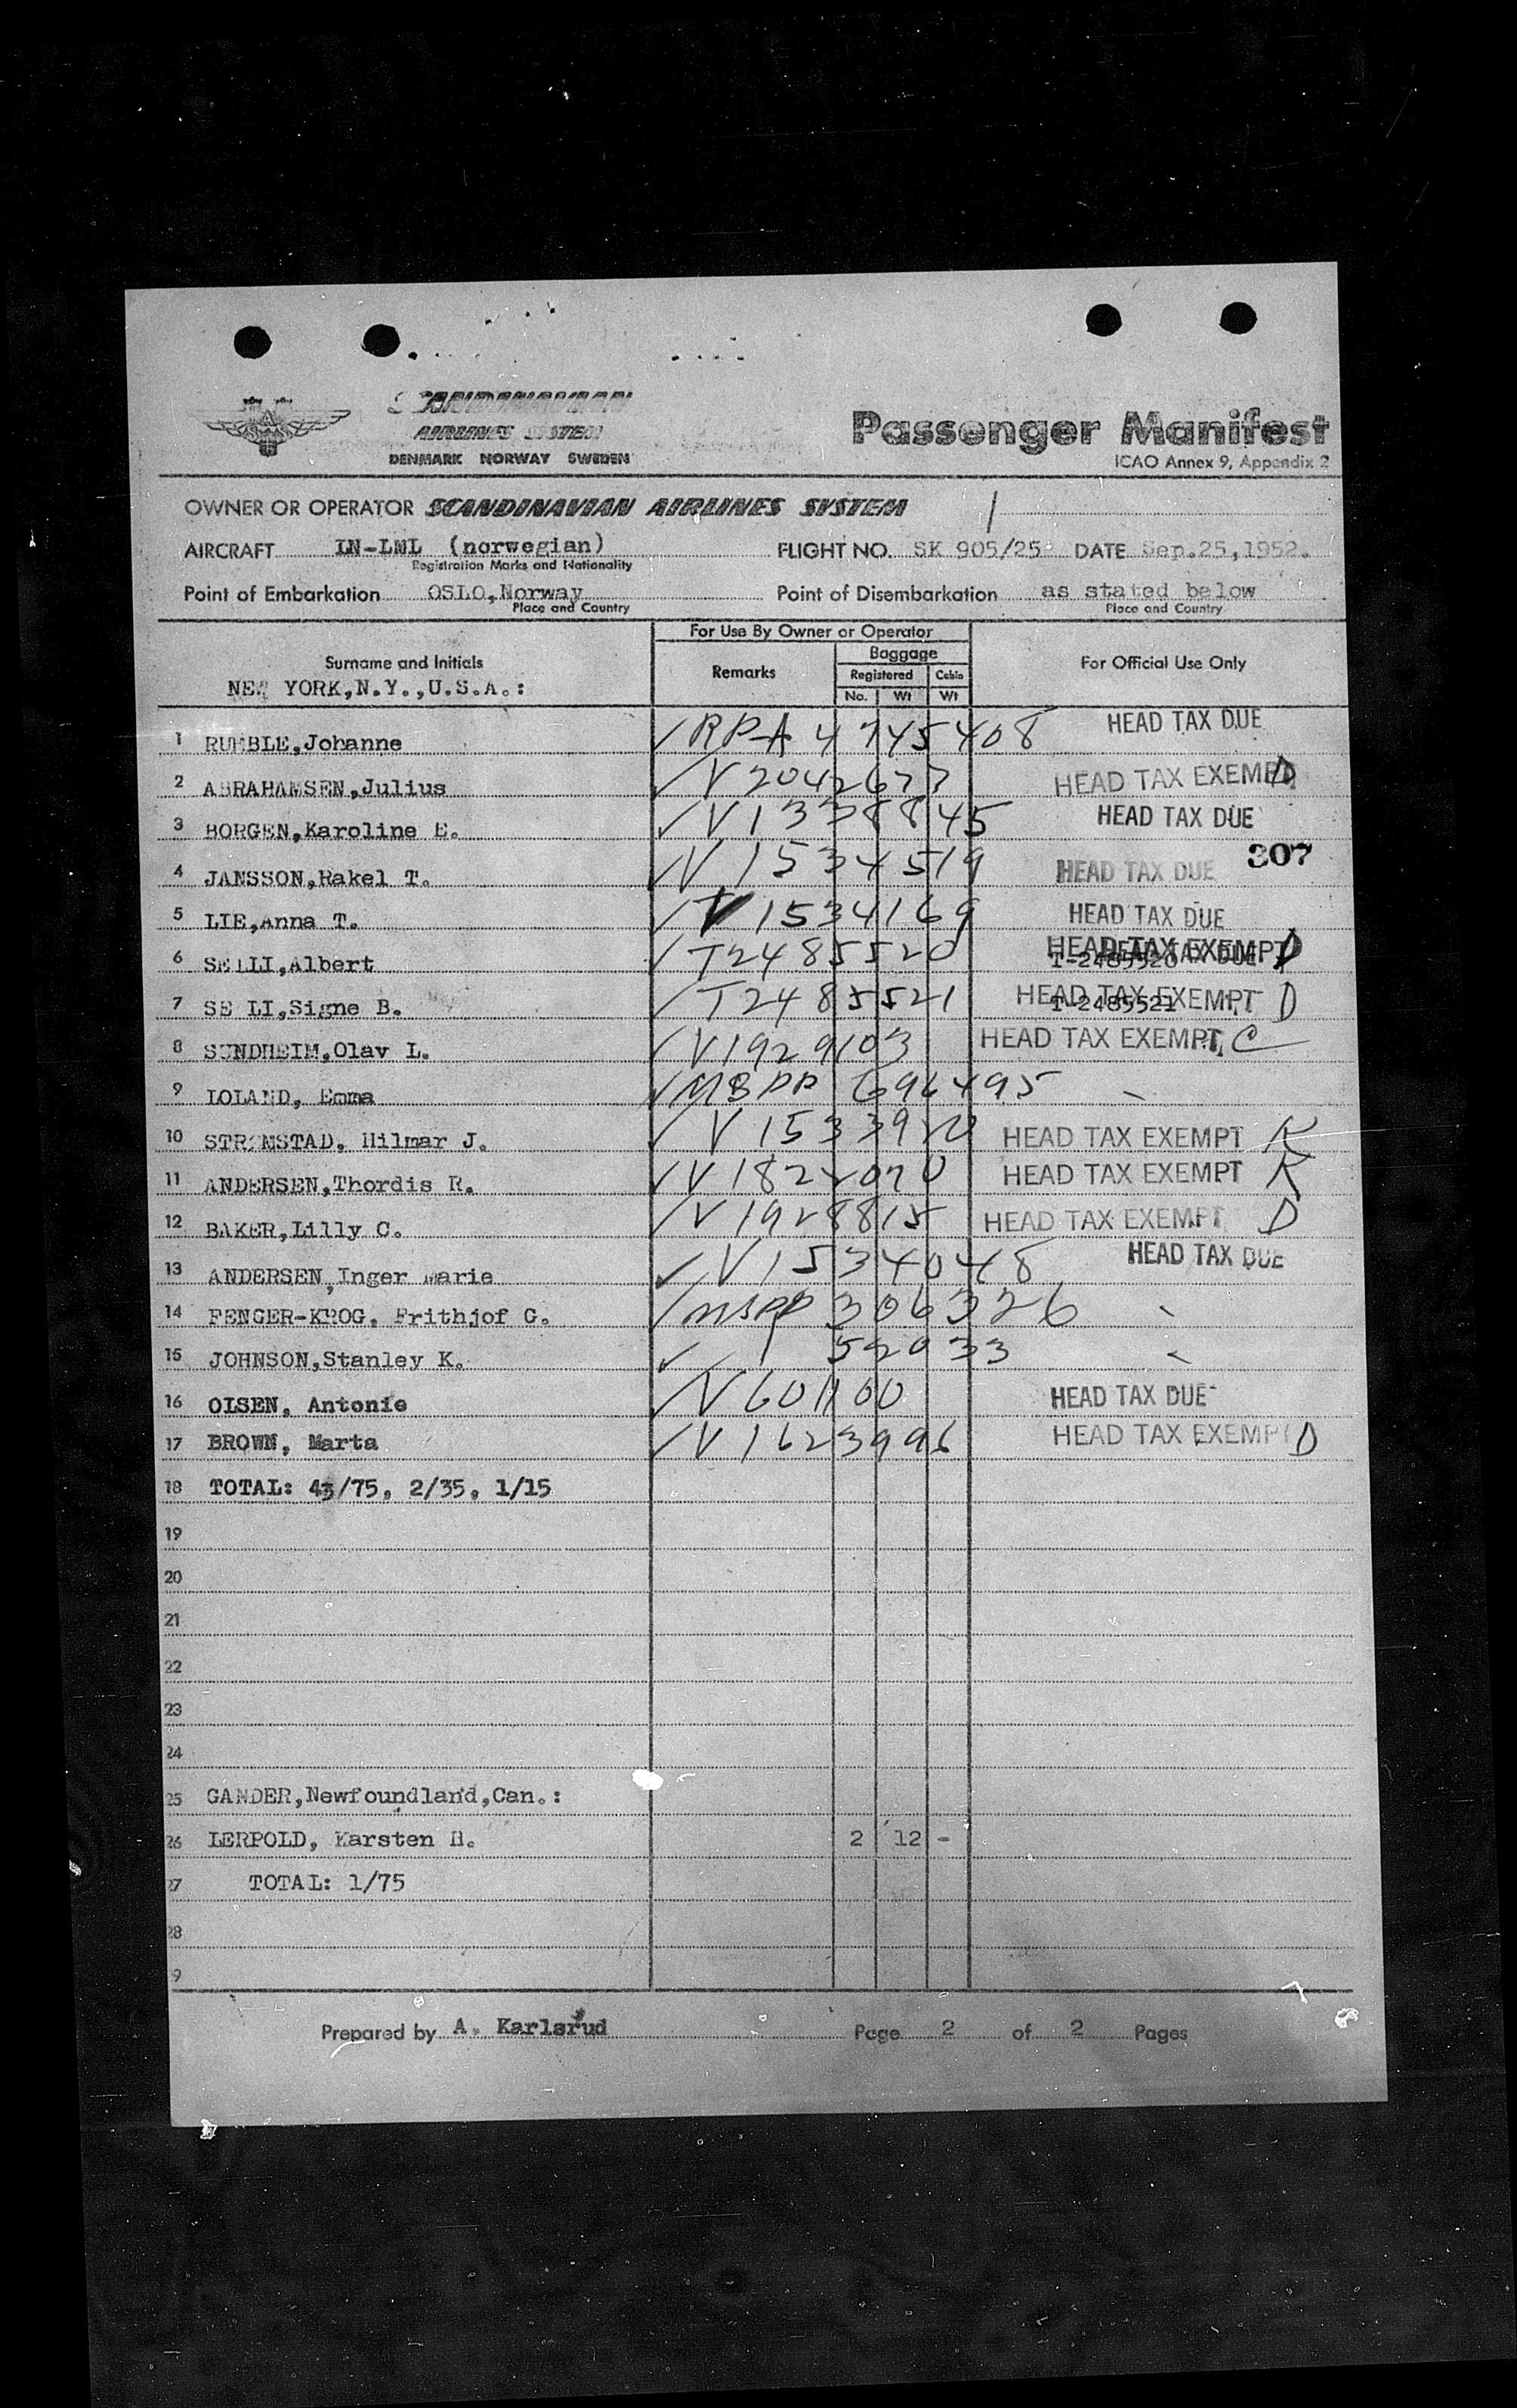 SCANDINAVIAN
AIRLINES SYSTEM
DENMARK NORWAY SWEDEN
Passenger Manifest
ICAO Annex 9, Appendix 2
OWNER OR OPERATOR SCANDINAVIAN AIRLINES SYSTEM
AIRCRAFT LN-LML (norwegian) FLIGHT NO. SK 905/25 DATE Sep.25,1952.
Registration Marks and Nationality
Point of Embarkation OSLO,Norway Point of Disembarkation as stated below
Place and Country Place and Country
For Use By Owner or Operator
Surname and Initials Remarks Baggage For Official Use Only
Registered Cabin
NEW YORK,N.Y.,U.S.A.: No. Wt Wt
1 RUMBLE,Johanne ✓ RPA 4745408 HEAD TAX DUE
2 ABRAHAMSEN,Julius ✓ V2042677 HEAD TAX EXEMPT D
3 BORGEN,Karoline E. ✓ V1338845 HEAD TAX DUE
4 JANSSON,Rakel T. ✓ V1534519 HEAD TAX DUE 307
5 LIE,Anna T. ✓ V1534169 HEAD TAX DUE
6 Albert ✓ T2485520 HEAD TAX EXEMPT D HEAD TAX DUE T-2485520
7 Signe B. ✓ T2485521 HEAD TAX EXEMPT D T-2485521
8 SUNDHEIM,Olav L. ✓ V1929103 HEAD TAX EXEMPT C
9 LOLAND, Emma ✓ 696495
10 STRØMSTAD, Hilmar J. ✓ V1533920 HEAD TAX EXEMPT K
11 ANDERSEN,Thordis R. ✓ V1822070 HEAD TAX EXEMPT K
12 BAKER,Lilly C. ✓ V1928815 HEAD TAX EXEMPT D
13 ANDERSEN,Inger Marie ✓ V1534048 HEAD TAX DUE
14 FENGER-KROG, Frithjof G. ✓ 306326
15 JOHNSON,Stanley K. ✓ 52933
16 OLSEN, Antonie ✓ V601100 HEAD TAX DUE
17 BROWN, Marta ✓ V1623996 HEAD TAX EXEMPT D
18 TOTAL: 43/75, 2/35, 1/15
19
20
21
22
23
24
25 GANDER,Newfoundland,Can.:
26 LERPOLD, Karsten H. 2 12 -
27 TOTAL: 1/75
28
9
Prepared by A. Karlsrud Page 2 of 2 Pages